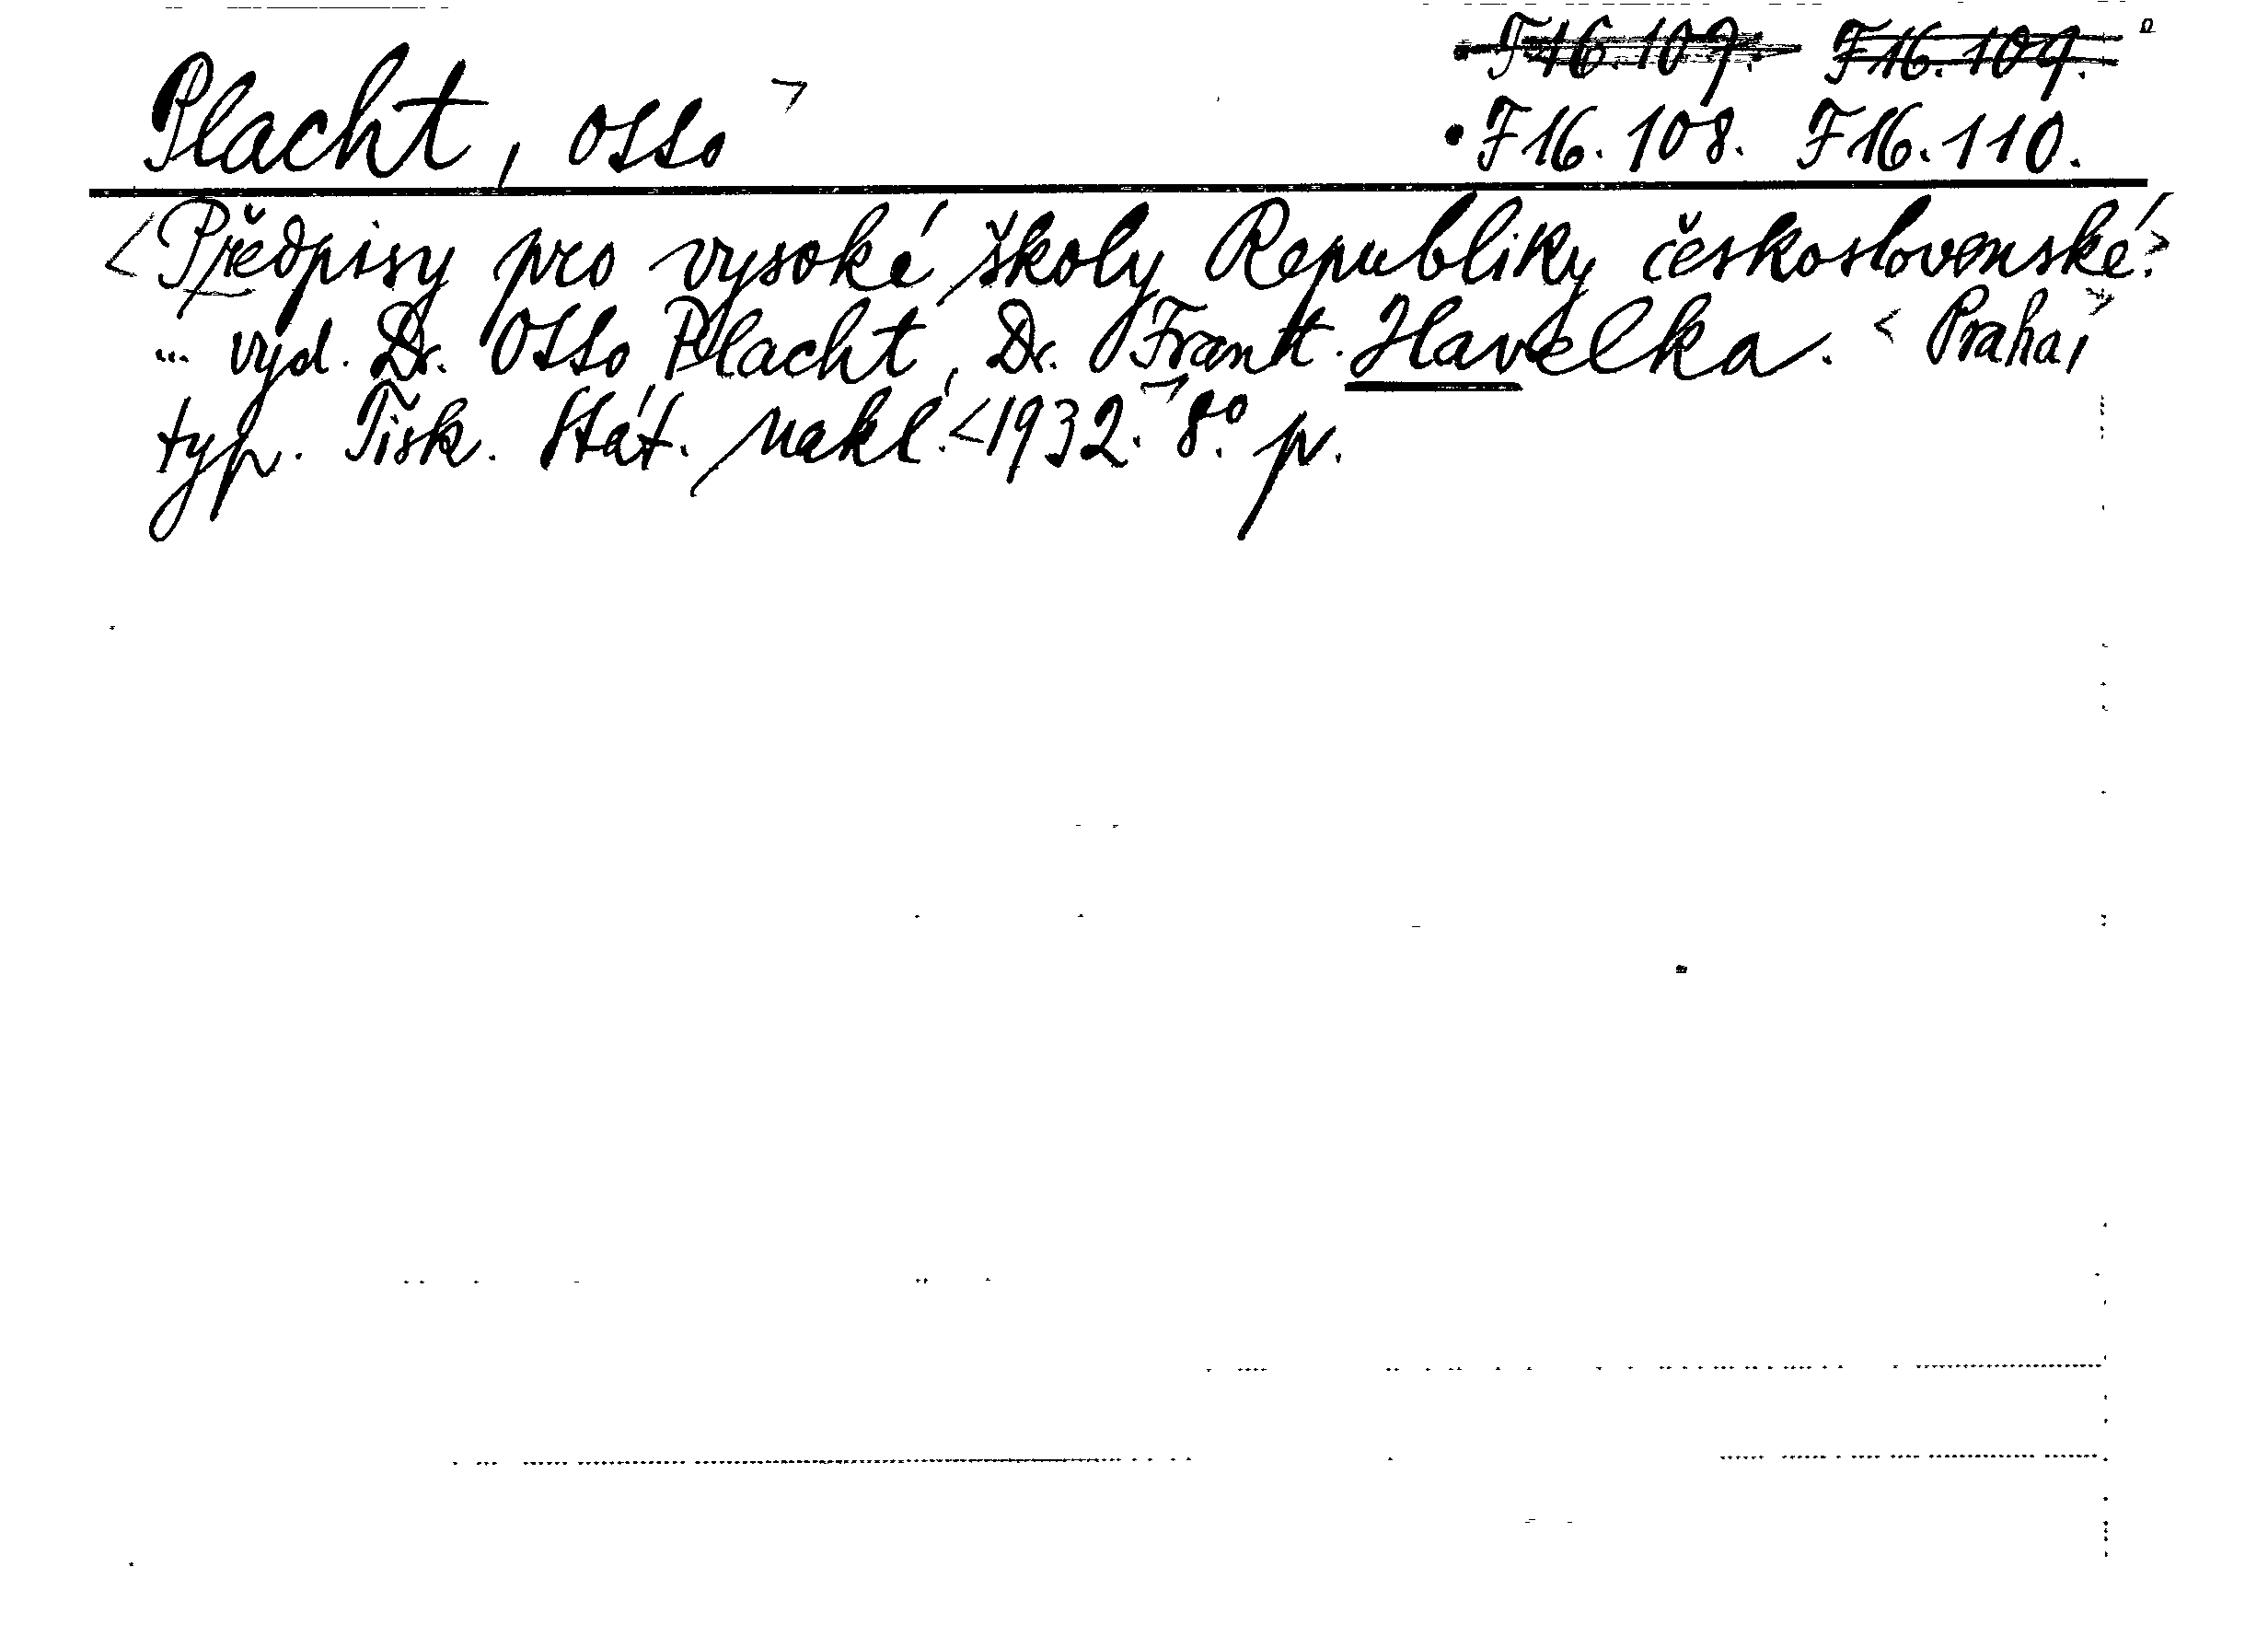 F16.107. F16.109.
Placht, Otto
F16.108. F16.110.
<Předpisy pro vysoké školy Republiky československé.>
... vyd. Dr. Otto Placht, Dr. Frant. Havelka. <Praha,>
typ. Tisk. Stát. Nakl. <1932.> 8.° p.